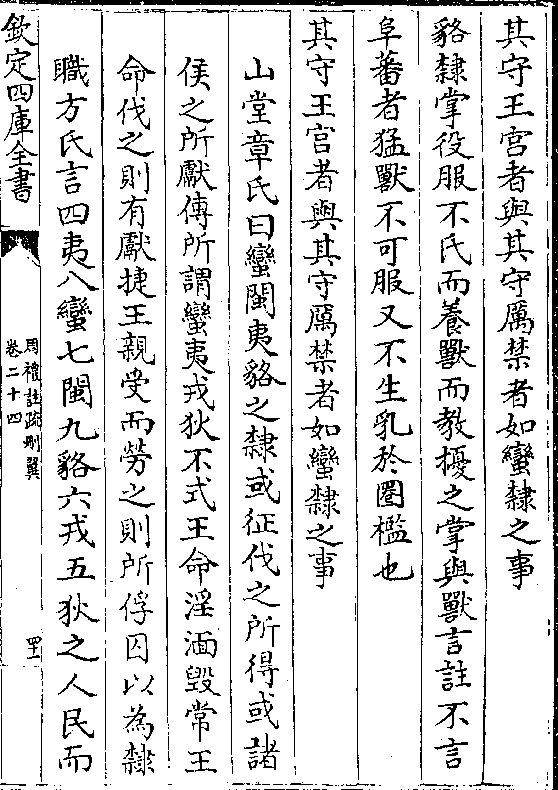 其守王宫者與其守厲禁者如蠻隸之事
貉隸掌役服不氏而養獸而教擾之掌與獸言註不言
阜蕃者猛獸不可服又不生乳於圈檻也
其守王宫者與其守厲禁者如蠻隸之事
山堂章氏曰蠻閩夷貉之隸或征伐之所得或諸
侯之所獻傳所謂蠻夷戎狄不式王命淫湎毀常王
命伐之則有獻捷王親受而勞之則所俘囚以為隸
職方氏言四夷八蠻七閩九貉六戎五狄之人民而
欽定四庫全書
周禮註疏刪翼
卷二十四